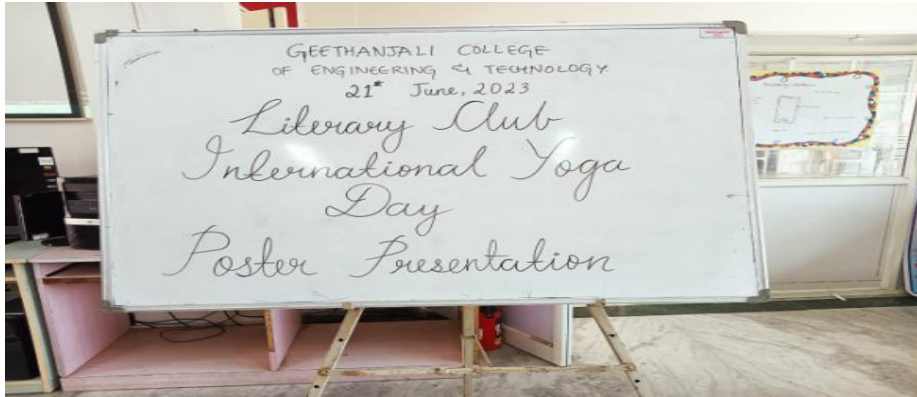 GEETHANJALI COLLEGE
OF ENGINEERING & TECHNOLOGY
21st June, 2023
Literary Club
International Yoga
Day
Poster Presentation